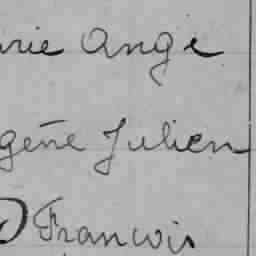 rie Ange
gène Julien
Francois